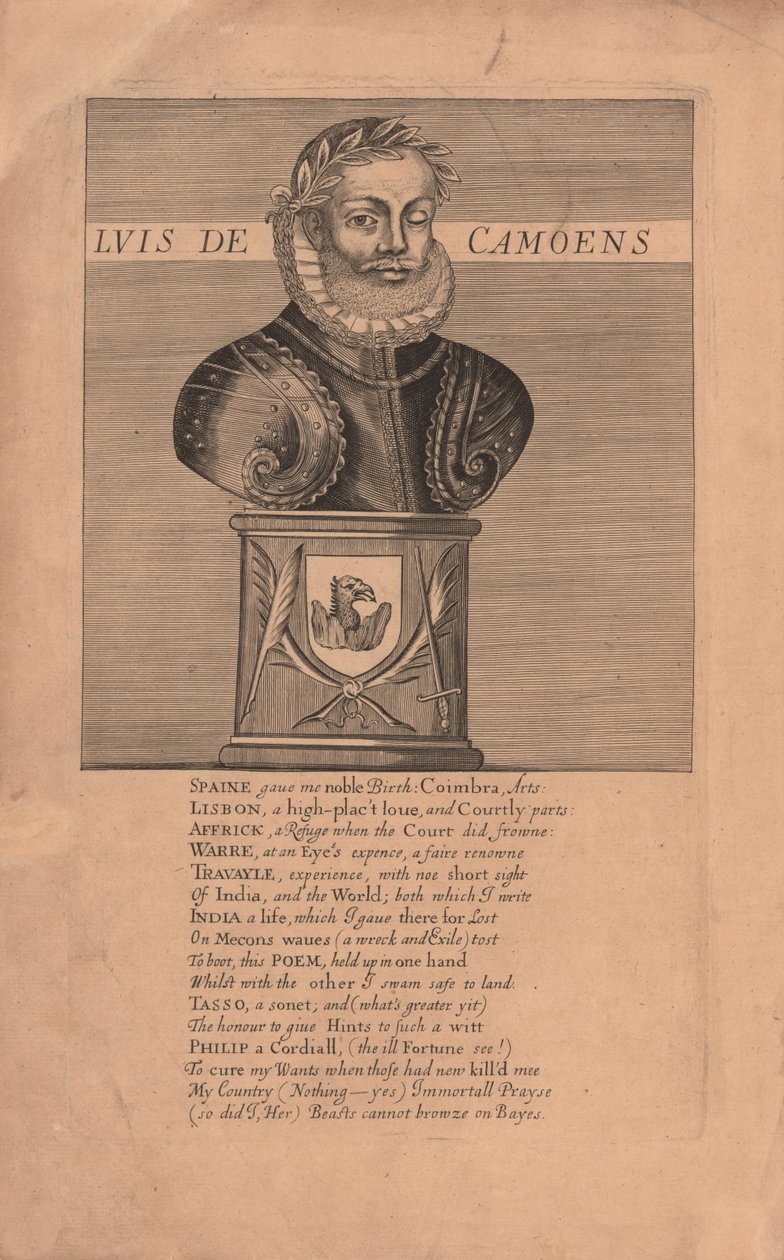 LVIS DE CAMOENS
SPAINE gaue me noble Birth: Coimbra, Arts:
LISBON, a high-plac't loue, and Courtly parts:
AFFRICK, a Refuge when the Court did frowne:
WARRE, at an Eye's expence, a faire renowne
TRAVAYLE, experience, with noe short sight
Of India, and the World; both which I write
INDIA a life, which I gaue there for Lost
On Mecons waues (a wreck and Exile) tost
To boot, this POEM, held up in one hand
Whilst with the other I swam safe to land.
TASSO, a sonet; and (what's greater yit)
The honour to giue Hints to ſuch a witt
PHILIP a Cordiall, (the ill Fortune see!)
To cure my Wants when thoſe had new kill'd mee
My Country (Nothing—yes) Immortall Prayse
(so did I, Her) Beasts cannot browze on Bayes.